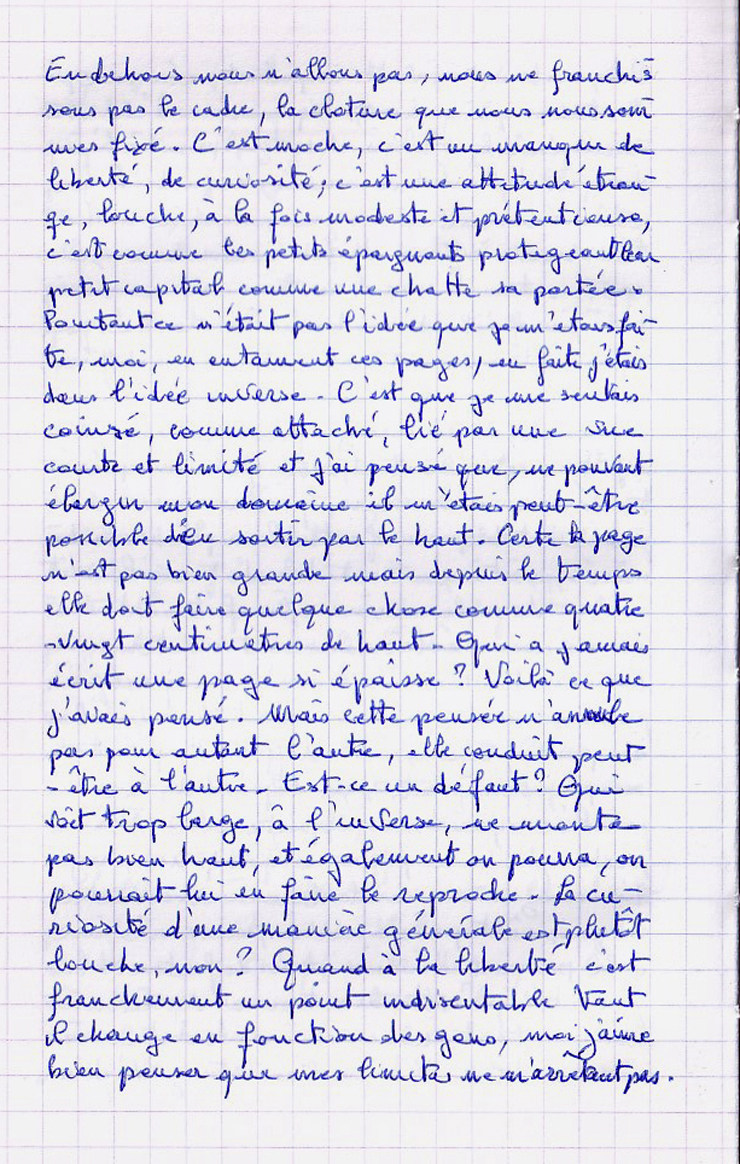 En dehors nous n'allons pas, nous ne franchis
sons pas le cadre, la cloture que nous nous som
mes fixé. C'est moche, c'est un manque de
liberté, de curiosité, c'est une attitude étran
ge, louche, à la fois modeste et prétentieuse,
c'est comme les petits épargnants protégeant leur
petit capital comme une chatte sa portée.
Pourtant ce n'était pas l'idée que je m'étais fai
te, moi, en entament ces pages, en faite j'étais
dans l'idée inverse. C'est que je me sentais
coinsé, comme attaché, lié par une vue
courte et limité et j'ai pensé que, ne pouvant
élargir mon domaine il m'étais peut-être
possible d'en sortir par le haut. Certe la page
n'est pas bien grande mais depuis le temps
elle doit faire quelque chose comme quatre
-vingt centimètres de haut. Qui a jamais
écrit une page si épaisse ? Voilà ce que
j'avais pensé. Mais cette pensée n'annule
pas pour autant l'autre, elle conduit peut
-être à l'autre. Est-ce un défaut ? Qui
voit trop large, à l'inverse, ne monte
pas bien haut, et également on pourra, on
pourrait lui en faire le reproche. La cu-
riosité d'une manière générale est plutôt
louche, non ? Quand à la liberté c'est
franchement un point indiscutable tant
il change en fonction des gens, moi j'aime
bien penser que mes limites ne m'arrêtent pas.